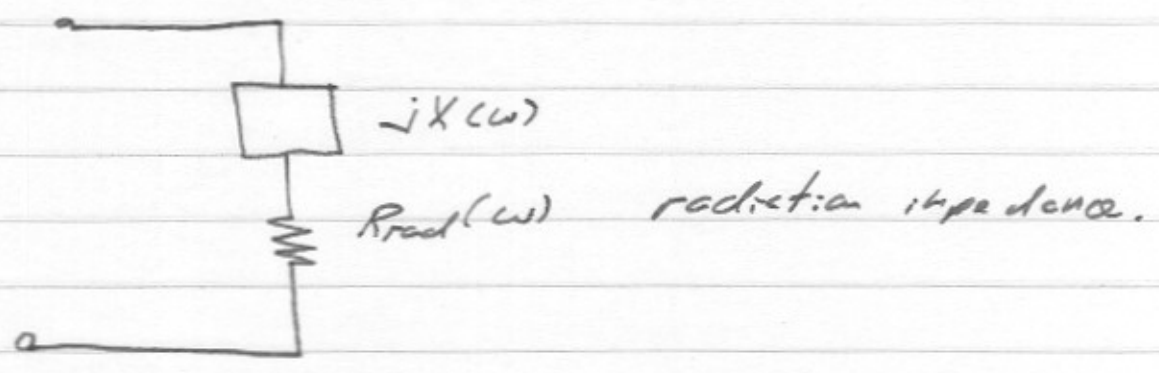 jX(ω)
Rrad(ω) radiation impedance.